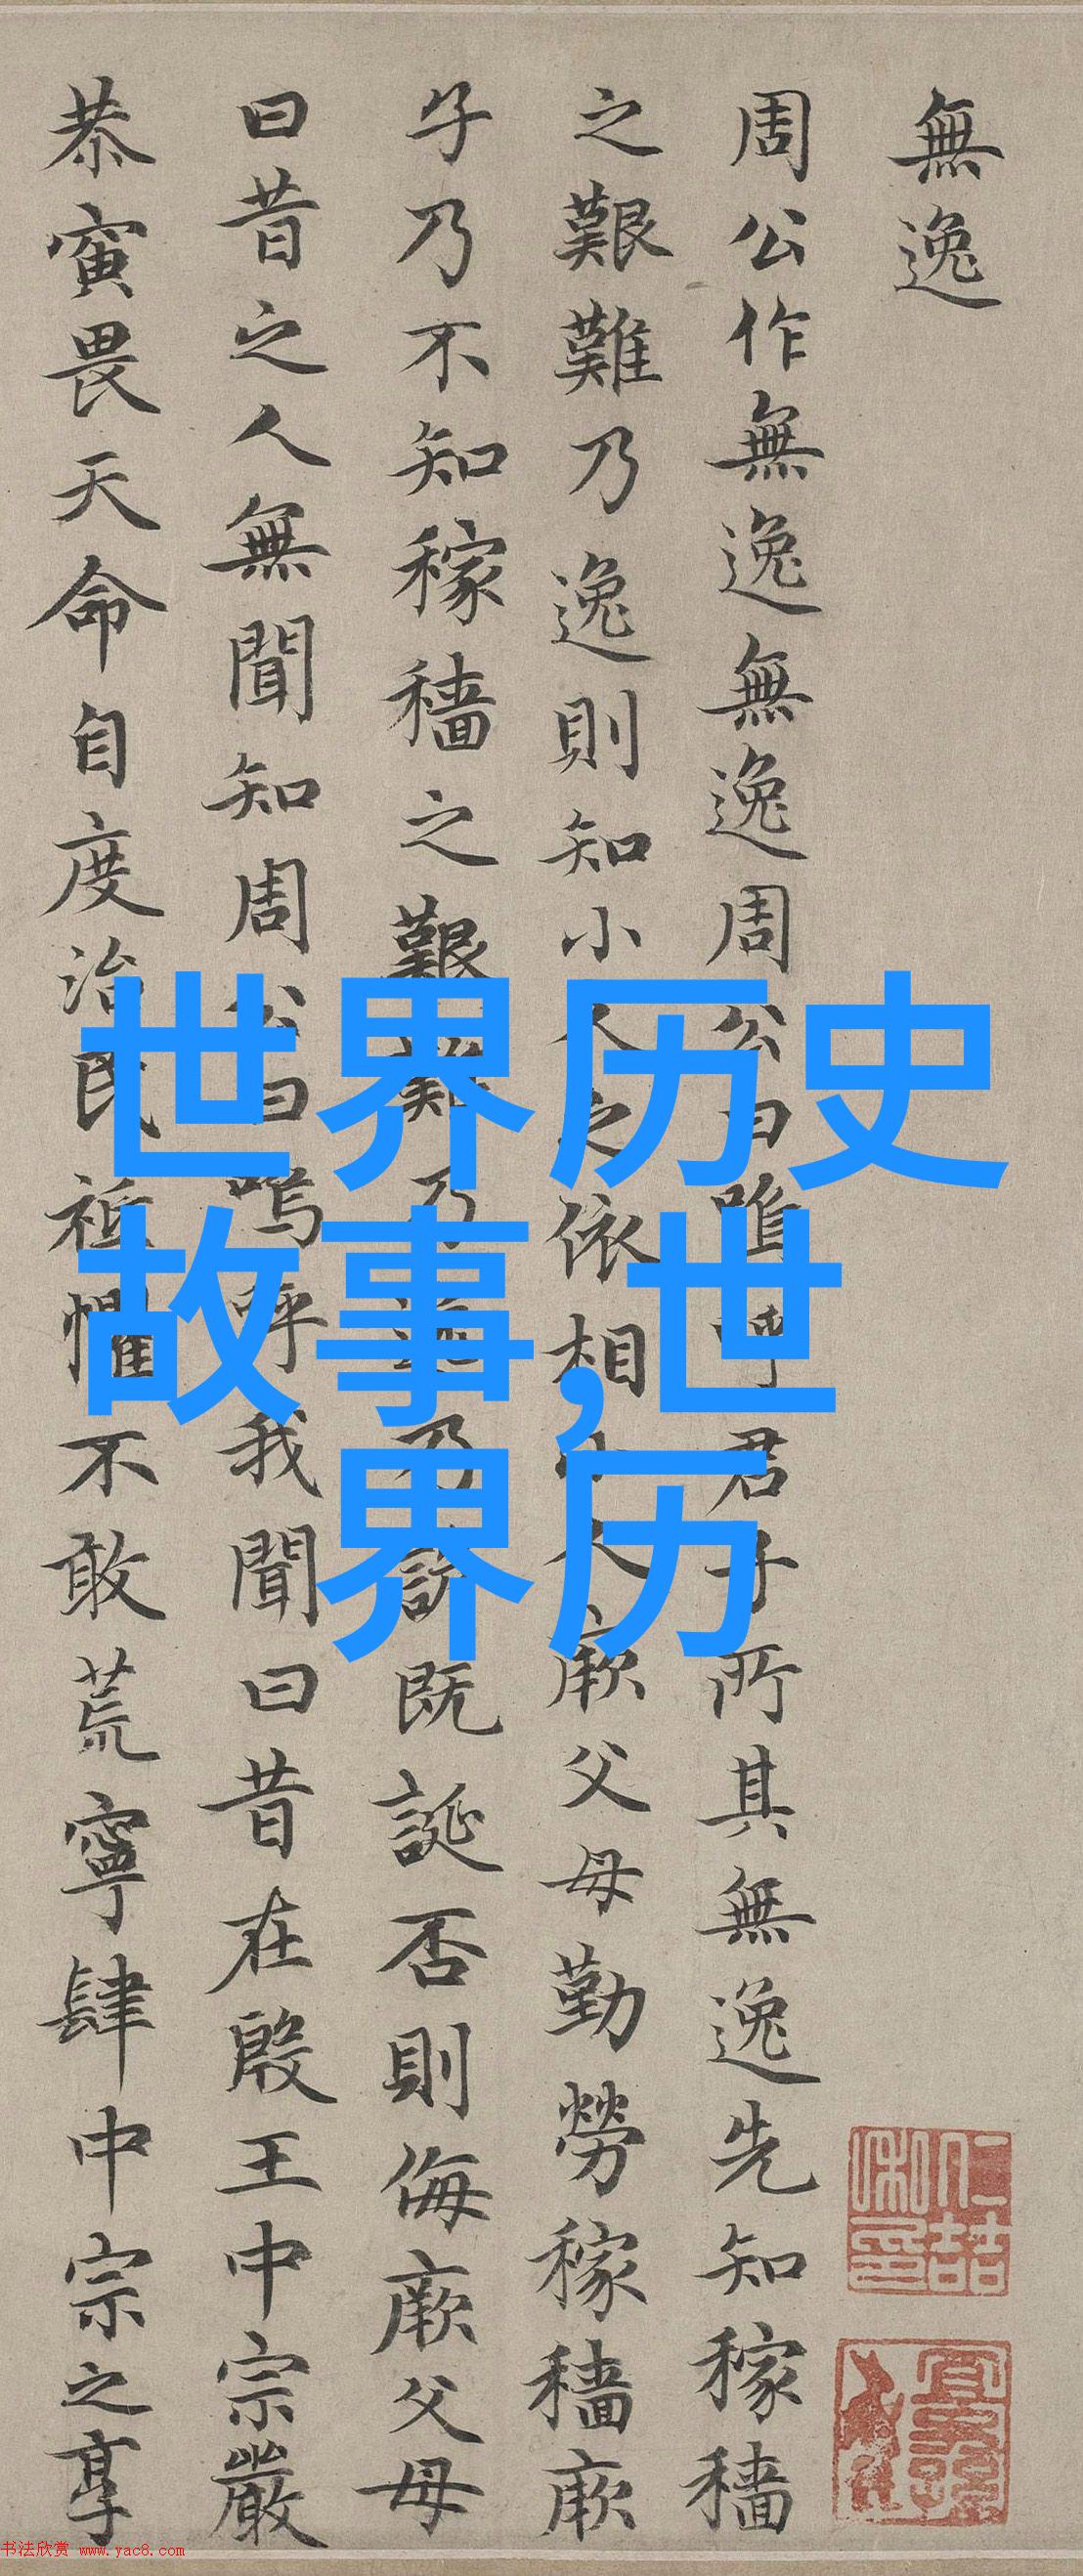 無逸
周公作無逸無逸周公曰嗚呼君子所其無逸先知稼穡
之艱難乃逸則知小人之依相小人厥父母勤勞稼穡厥
子乃不知稼穡之艱難乃逸乃諺既誕否則侮厥父母
曰昔之人無聞知周公曰嗚呼我聞曰昔在殷王中宗嚴
恭寅畏天命自度治民祗懼不敢荒寧肆中宗之享
世界历史
故事,世
界历
书法欣赏 www.yac8.com